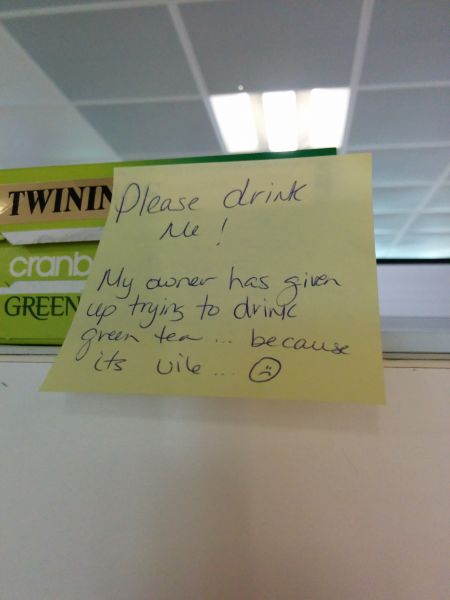 TWININ
cranb
GREEN
Please drink
Me!
My owner has given
up trying to drink
green tea ... because
its vile ...